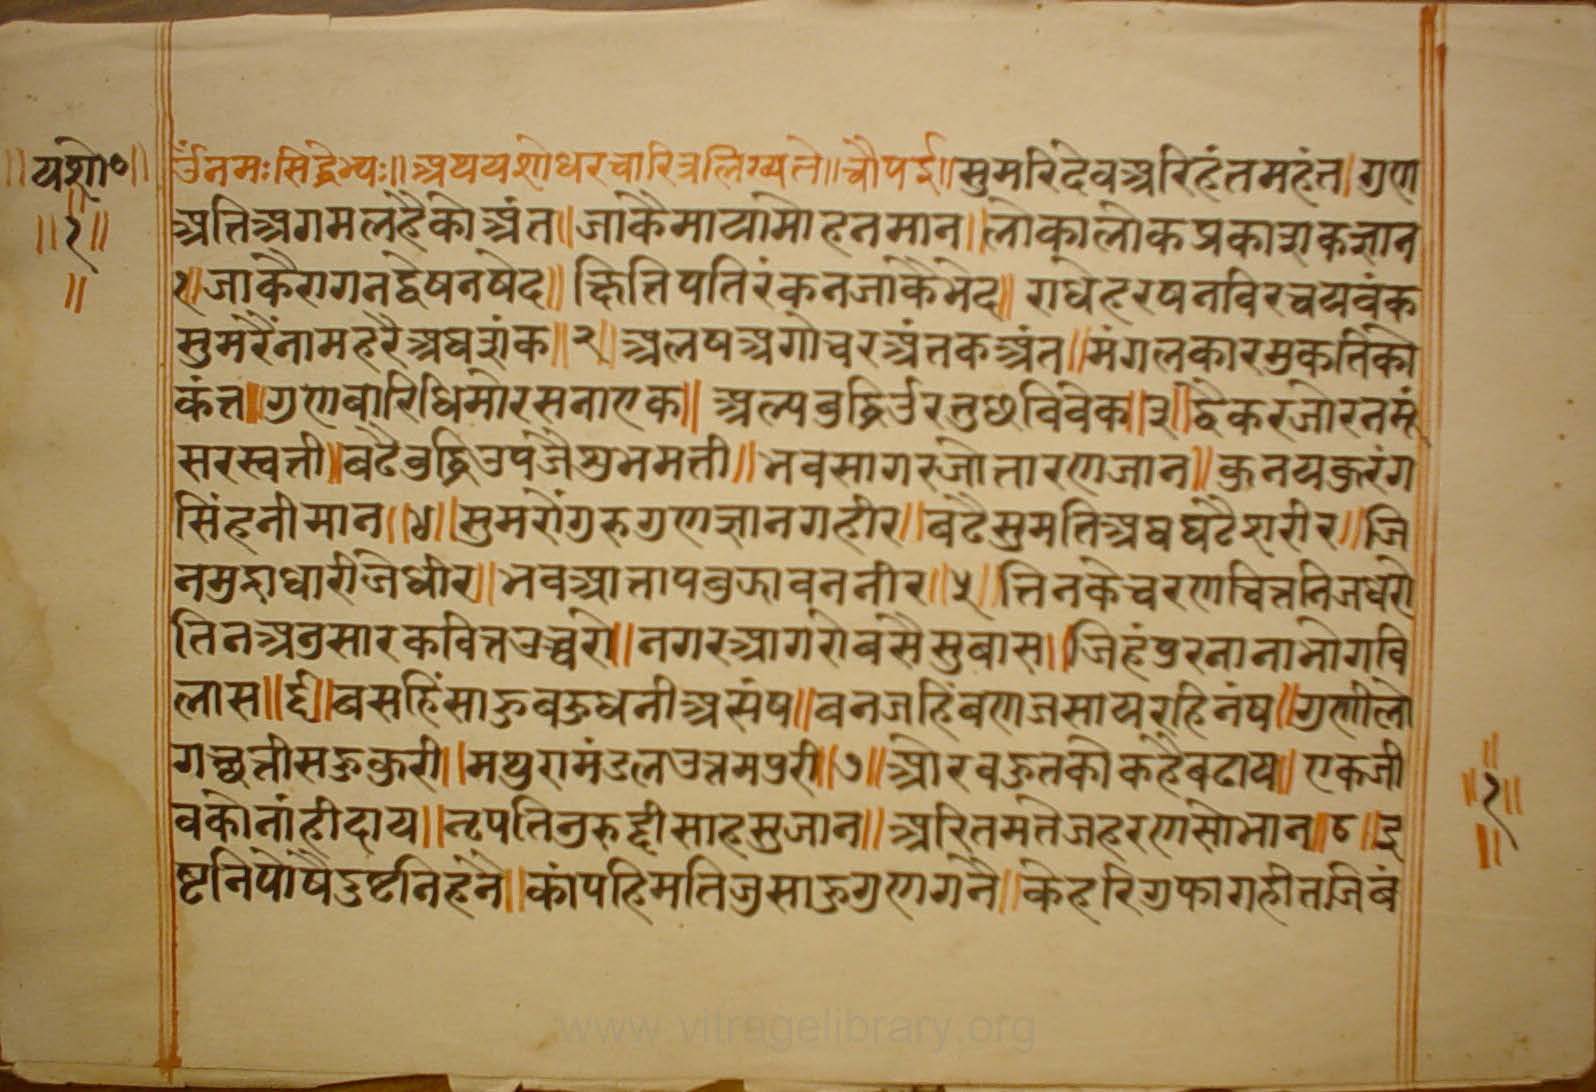 ॥यशो०॥
॥१॥
॥
ॐनमःसिद्धेभ्यः॥अथयशोधरचारित्रलिख्यते॥चौपई॥सुमरिदेवअरिहंतमहंत।गुण
अतिअगमलहैकोअंत॥जाकैमायामोहनमान॥लोकालोकप्रकाशकज्ञान
१॥जाकैरागनद्वेषनषेद॥छितिपतिरंकनजाकैभेद॥राधेहरषनविरचयवंक
सुमरैंनामहरैअघशंक॥२॥अलषअगोचरअंतकअंत॥मंगलकारमुकतिको
कंत॥गुणवारिधिमोरसनाएक॥अल्पबुद्धिउरतुछविवेक॥३॥द्वैकरजोरनमूं
सरस्वती॥बढैबुद्धिउपजैशुभमती॥भवसागरजोतारणजान॥कुनयकुरंग
सिंहनीमान॥४॥सुमरौंगुरुगुणज्ञानगहीर॥बढैसुमतिअघघटैशरीर॥जि
नमुद्राधारीजेधीर॥भवआतापबुझावननीर॥५॥तिनकेचरणचित्तनिजधरो
तिनअनुसारकवित्तउच्चरो॥नगरआगरोबसैसुबास॥जिहंपुरनानाभोगवि
लास॥६॥बसहिंसाहुबहुधनीअसंष॥बनजहिंबणजसायरहिनंष॥गुणीलो
गछत्तीसहुकुरी॥मथुरामंडलउत्तमपुरी॥७॥औरबहुतकोकहैबढाय॥एकजी
वकोनांहीदाय॥नृपतिनुरुद्दीसाहसुजान॥अरितमतेजहरणसोभान॥८॥इ
ष्टनिपोषैदुष्टनिहनै॥कांपहिमतिजुसाहुगुणगनै॥केहरिगुफागहीतजिबं
॥
॥१॥
॥
www.vitragelibrary.org